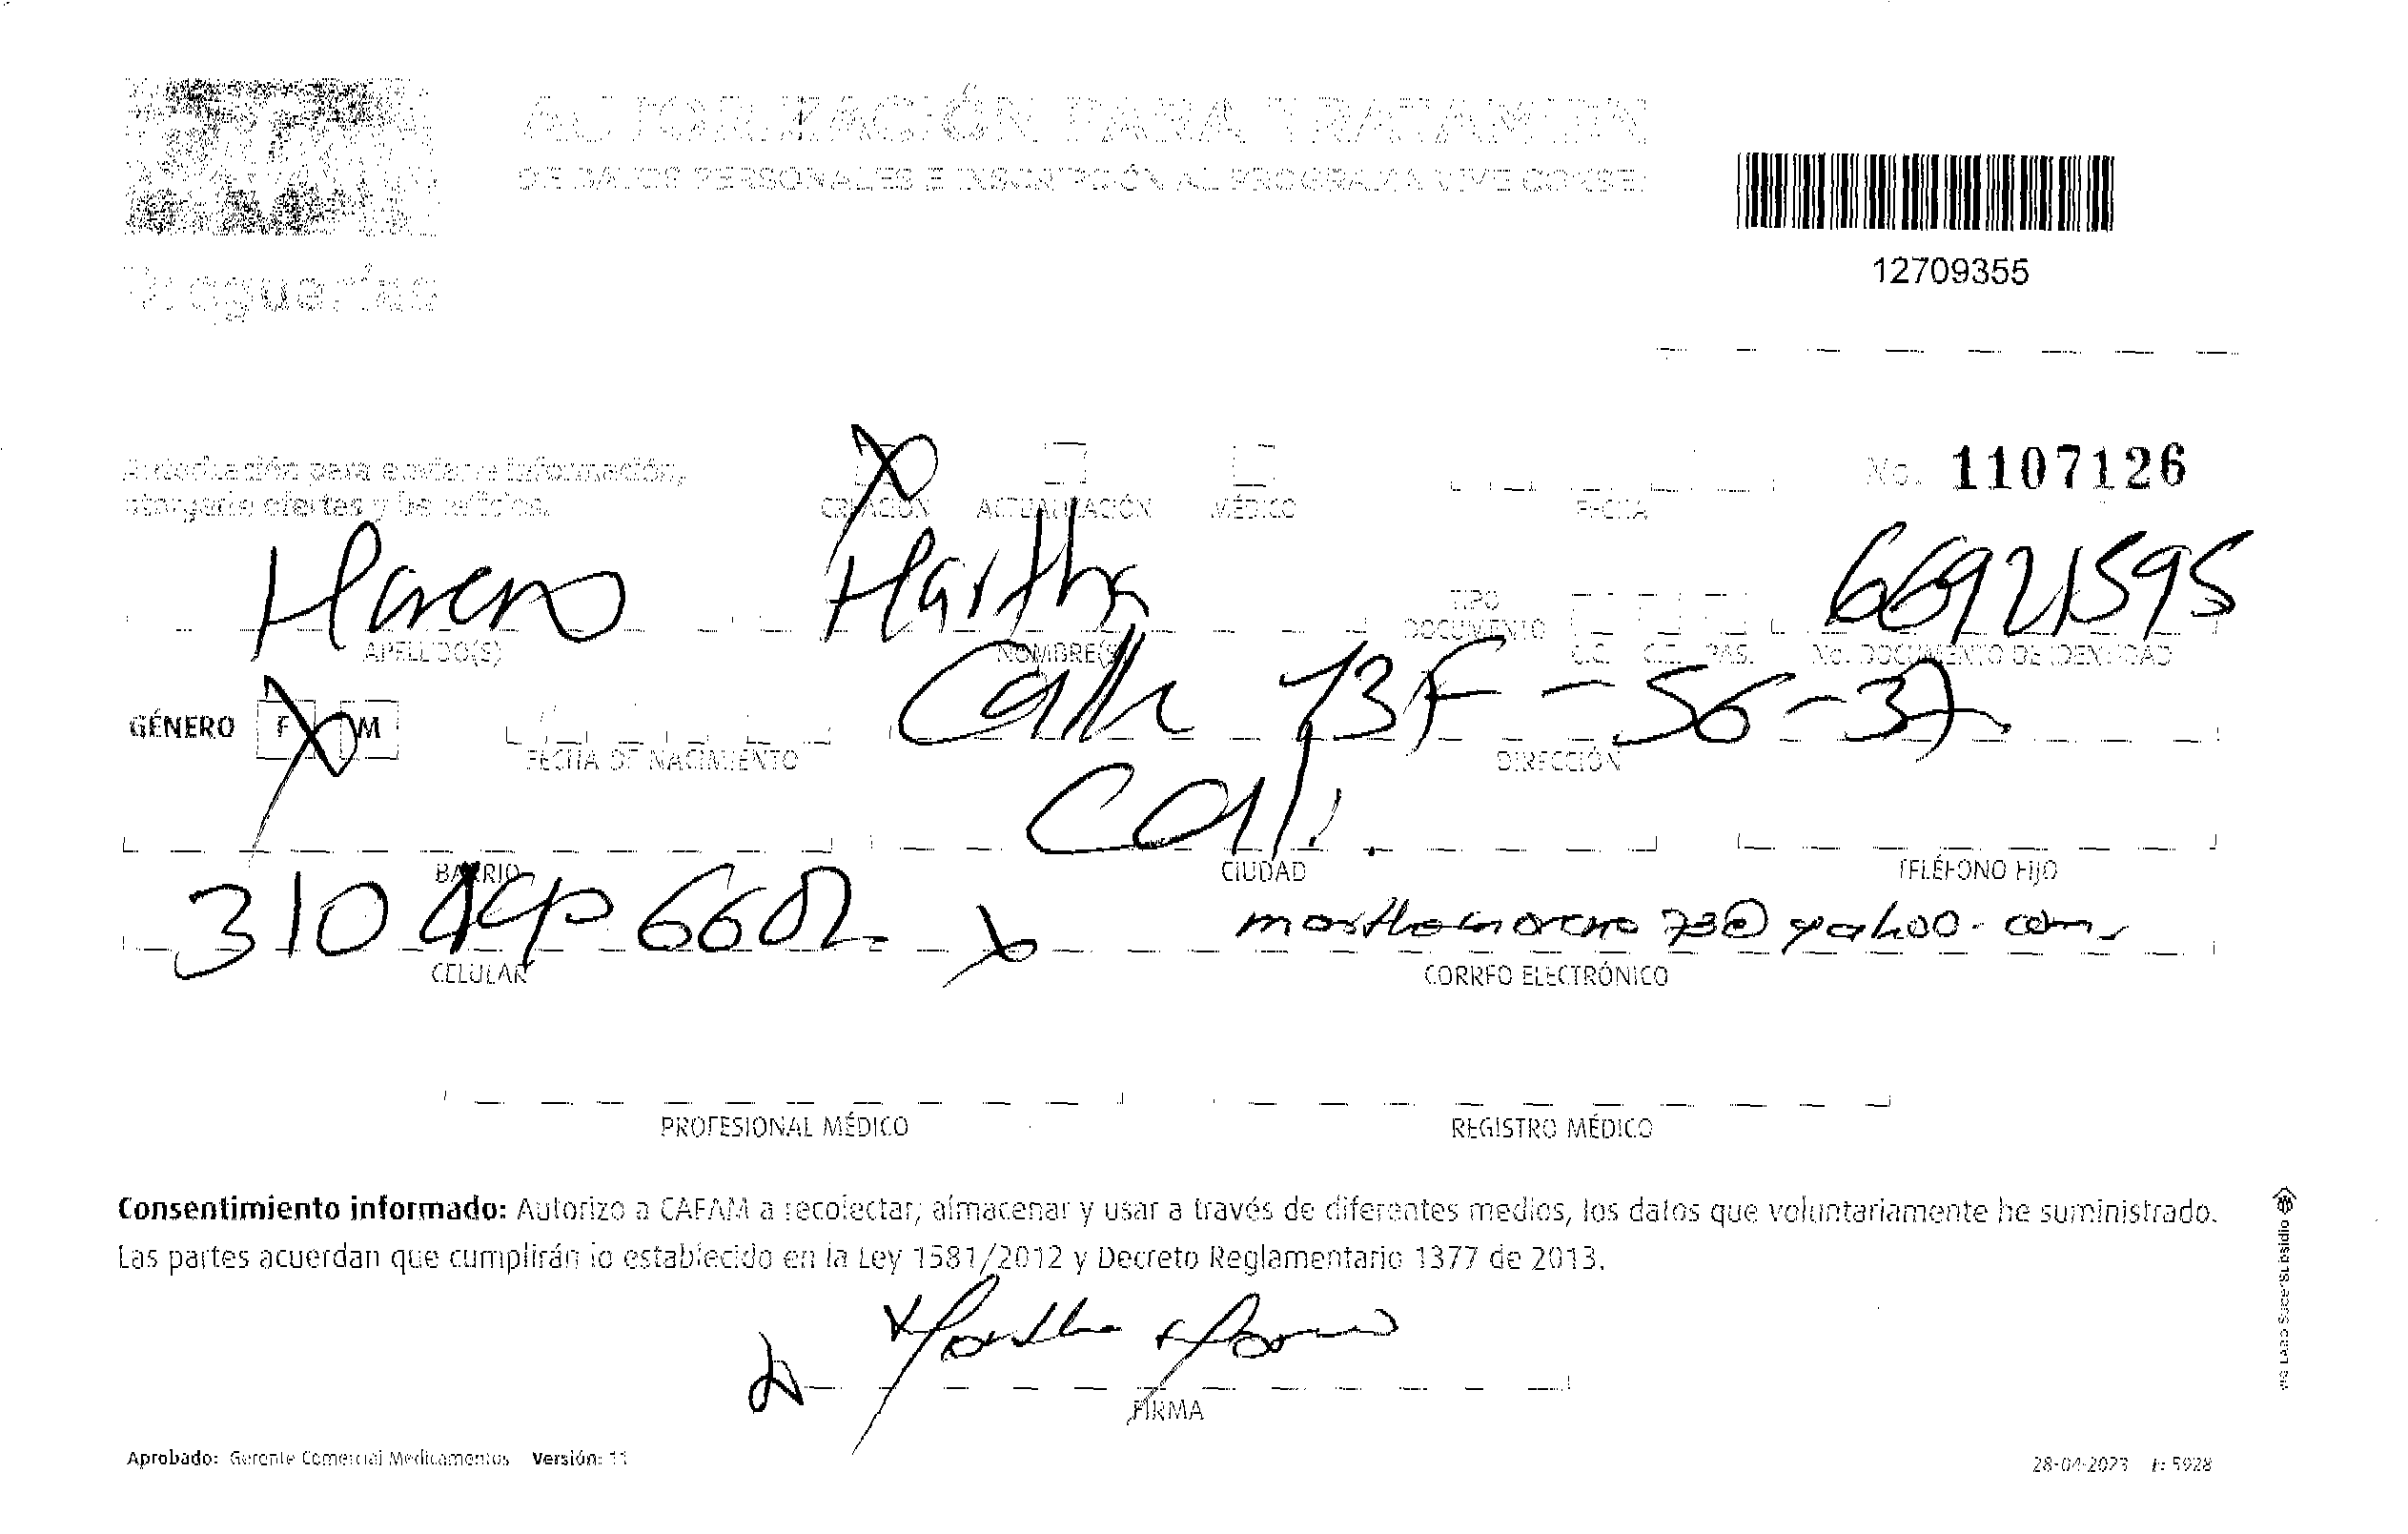 AUTORIZACIÓN PARA TRATAMIEN
DE DATOS PERSONALES E INSCRIPCIÓN AL PROGRAMA VIVE CONSE
12709355
Droguerías
Autorización para enviarle información,
otorgarle ofertas y beneficios.
CREACIÓN ACTUALIZACIÓN MÉDICO FECHA No. 1107126
Moreno Martha 66921595
APELLIDO(S) NOMBRE(S) TIPO DOCUMENTO C.C. C.E. PAS. No. DOCUMENTO DE IDENTIDAD
GÉNERO F M Calle 13F-56-37
FECHA DE NACIMIENTO DIRECCIÓN
Cali.
BARRIO CIUDAD TELÉFONO FIJO
310 6602 marthamoreno73@yahoo.com
CELULAR CORREO ELECTRÓNICO
PROFESIONAL MÉDICO REGISTRO MÉDICO
Consentimiento informado: Autorizo a CAFAM a recolectar, almacenar y usar a través de diferentes medios, los datos que voluntariamente he suministrado.
Las partes acuerdan que cumplirán lo establecido en la Ley 1581/2012 y Decreto Reglamentario 1377 de 2013.
Martha Moreno
FIRMA
Aprobado: Gerente Comercial Medicamentos Versión: 11
28-04-2023 F: 5928